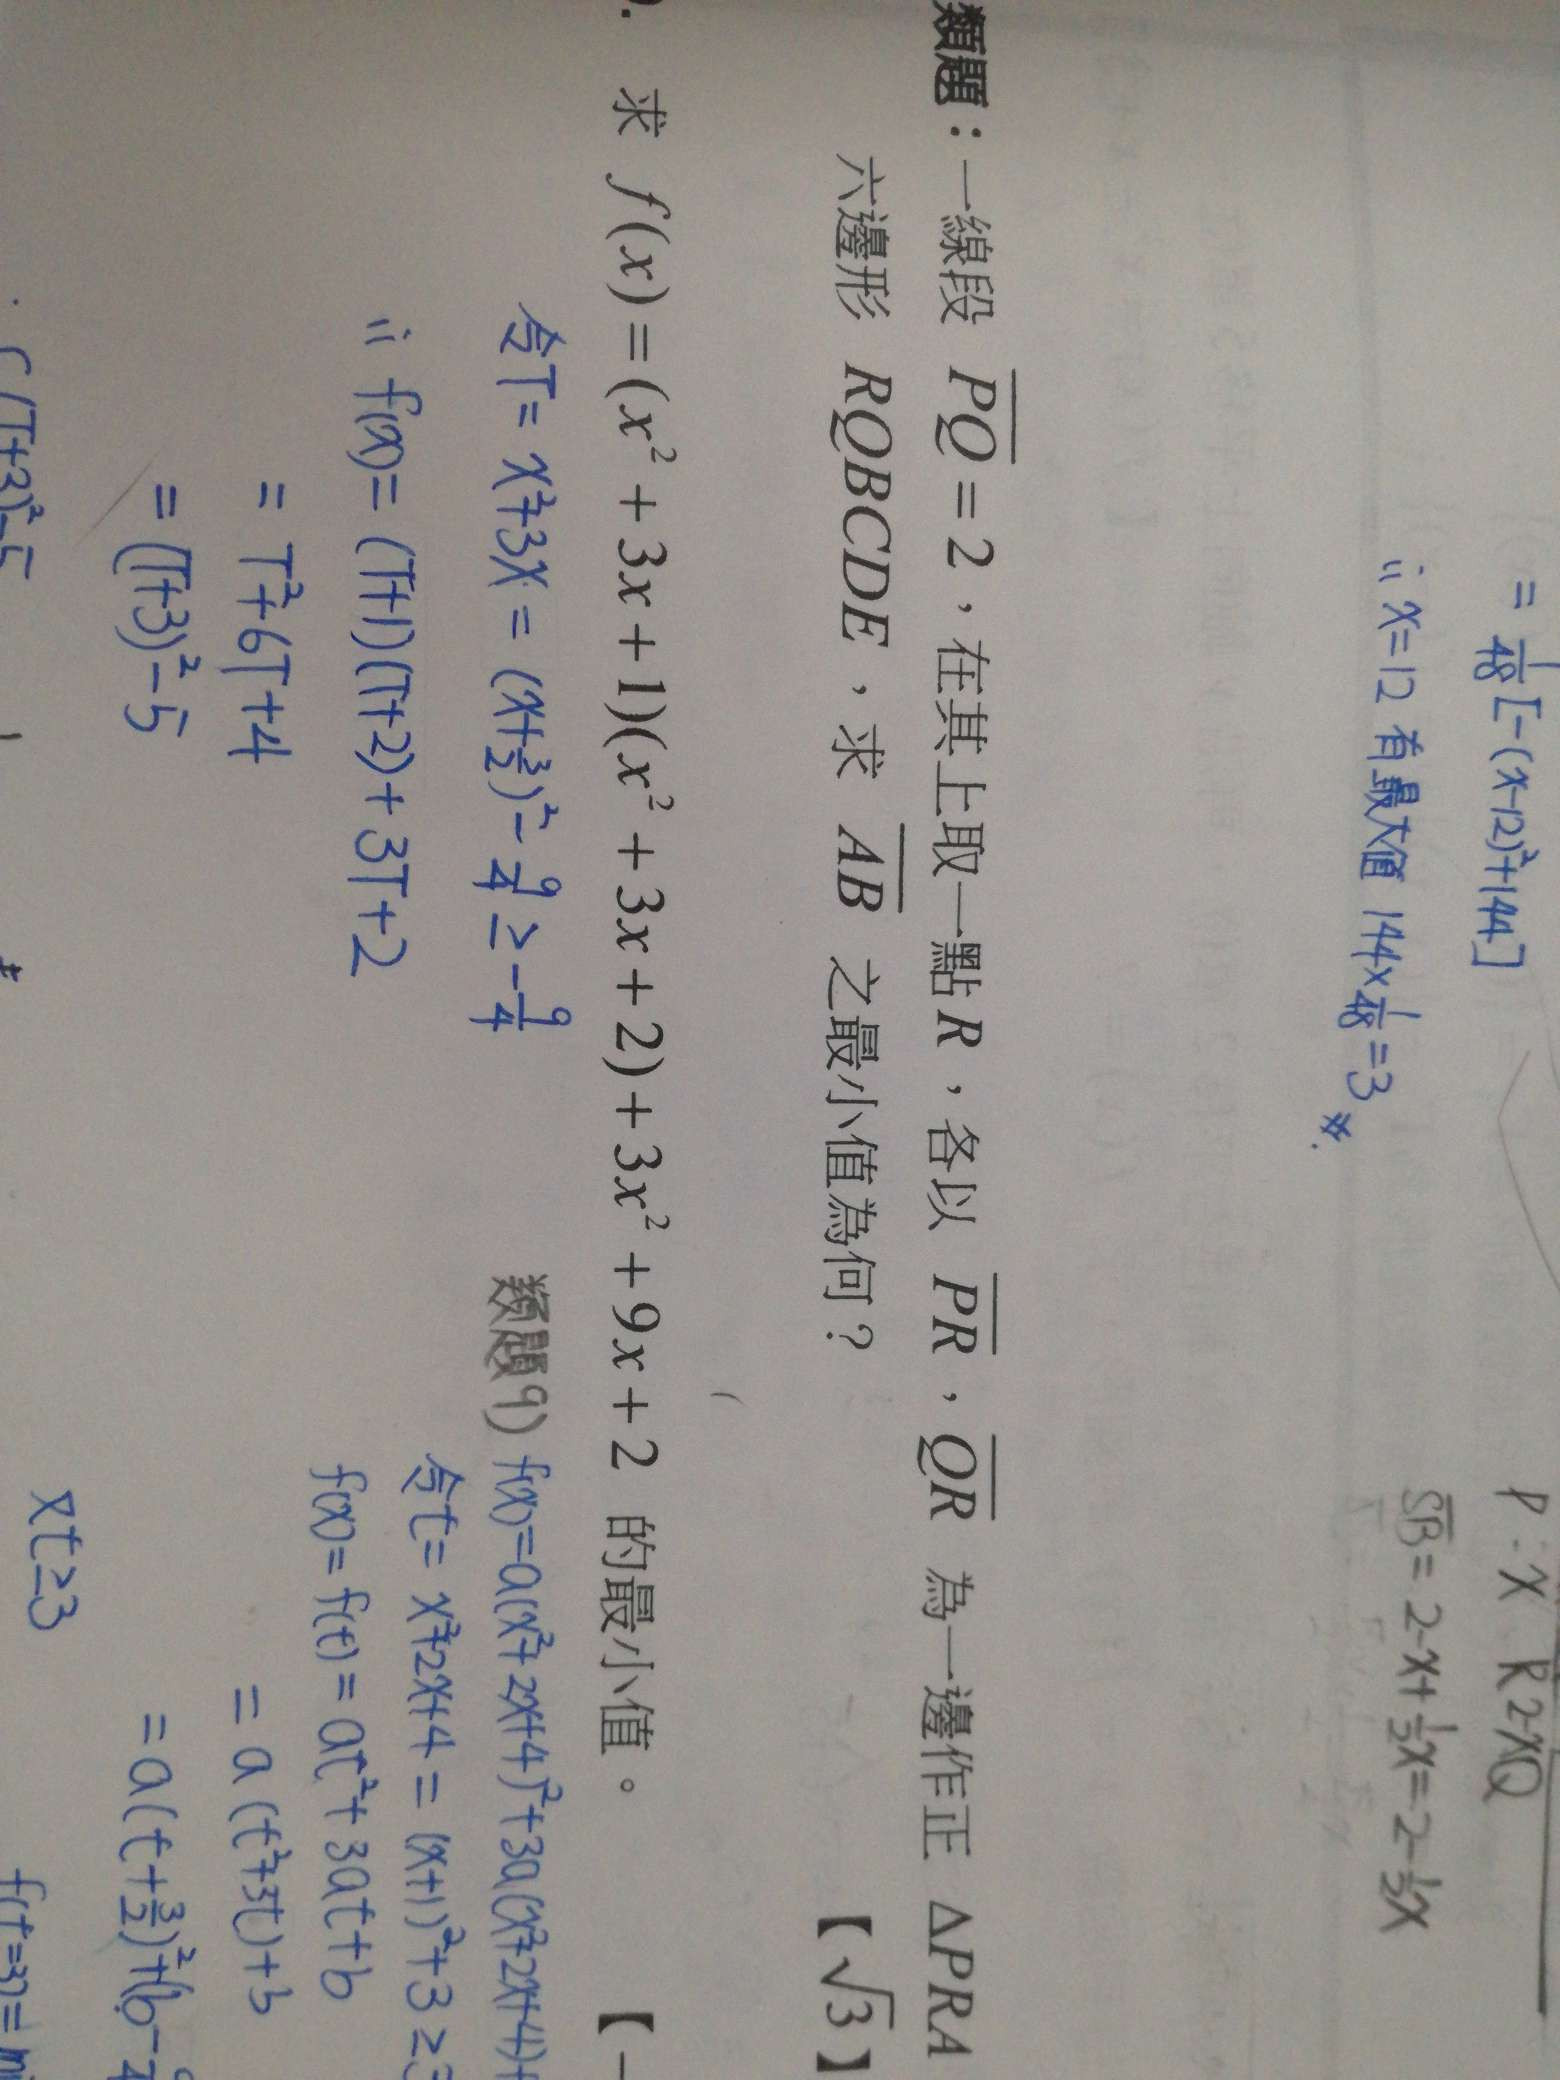 = 1/48 [-(x-12)²+144]
∴ x=12 有最大值 144×1/48 = 3
P x R 2-x Q
SB = 2-x+1/2x = 2-1/2x
類題：一線段 PQ = 2，在其上取一點R，各以 PR，QR 為一邊作正 ΔPRA
六邊形 RQBCDE，求 AB 之最小值為何？ 【√3】
求 f(x) = (x² + 3x + 1)(x² + 3x + 2) + 3x² + 9x + 2 的最小值。 【−
令T = x²+3x = (x+3/2)² - 9/4 ≥ -9/4
∴ f(x) = (T+1)(T+2)+3T+2
= T²+6T+4
= (T+3)²-5
(T+3)²-5
類題9) f(x)=a(x²+2x+4)²+3a(x²+2x+4)+
令t = x²+2x+4 = (x+1)²+3 ≥3
f(x) = f(t) = at²+3at+b
= a(t²+3t)+b
= a(t+3/2)²+(b-
又t≥3
f(t=3)=